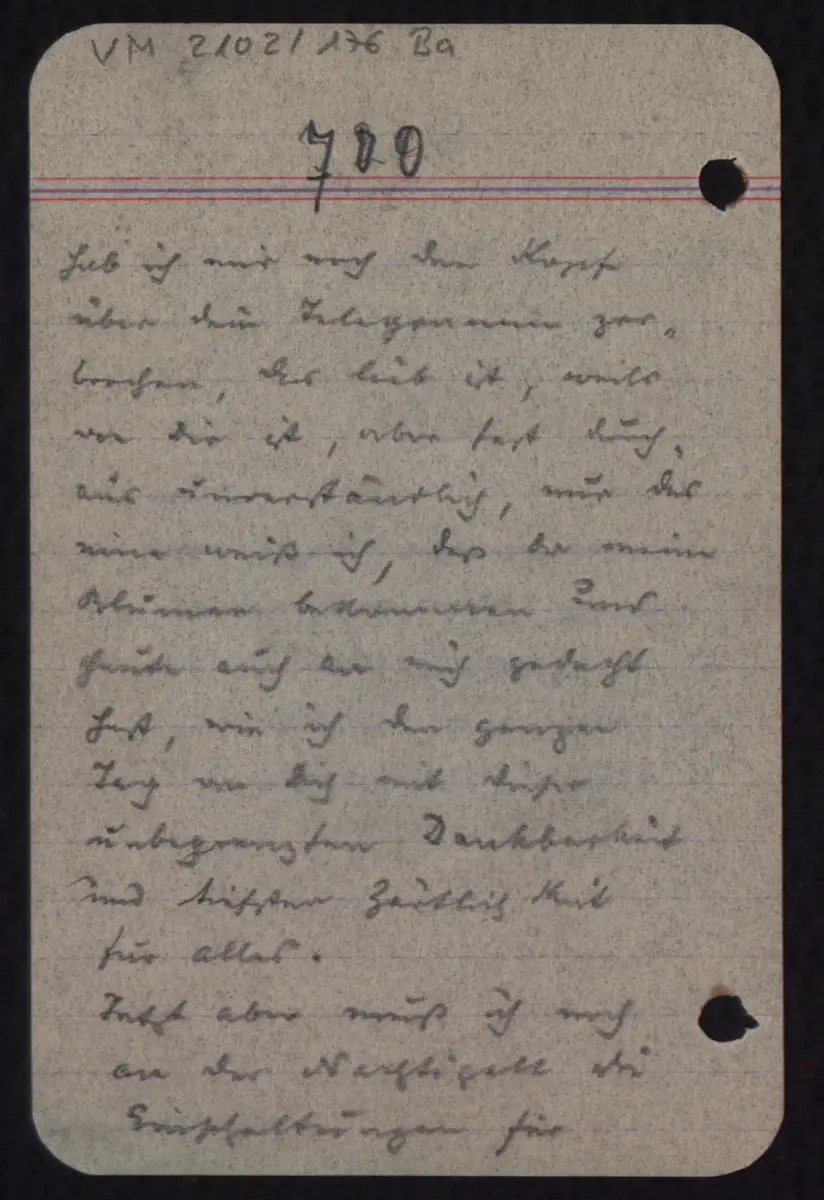 VM 2102/176 Ba
700
hab ich mir noch den Kopf
über dein Telegramm zer-
brochen, das lieb ist, weils
von dir ist, aber fast durch-
aus unverständlich, nur das
eine weiß ich, daß du meine
Blumen bekommen und
heute auch an mich gedacht
hast, wie ich den ganzen
Tag an Dich mit dieser
unbegrenzten Dankbarkeit
und tiefsten Zärtlichkeit
für alles.
Jetzt aber muß ich noch
an der Nachtigall die
Einschaltungen für